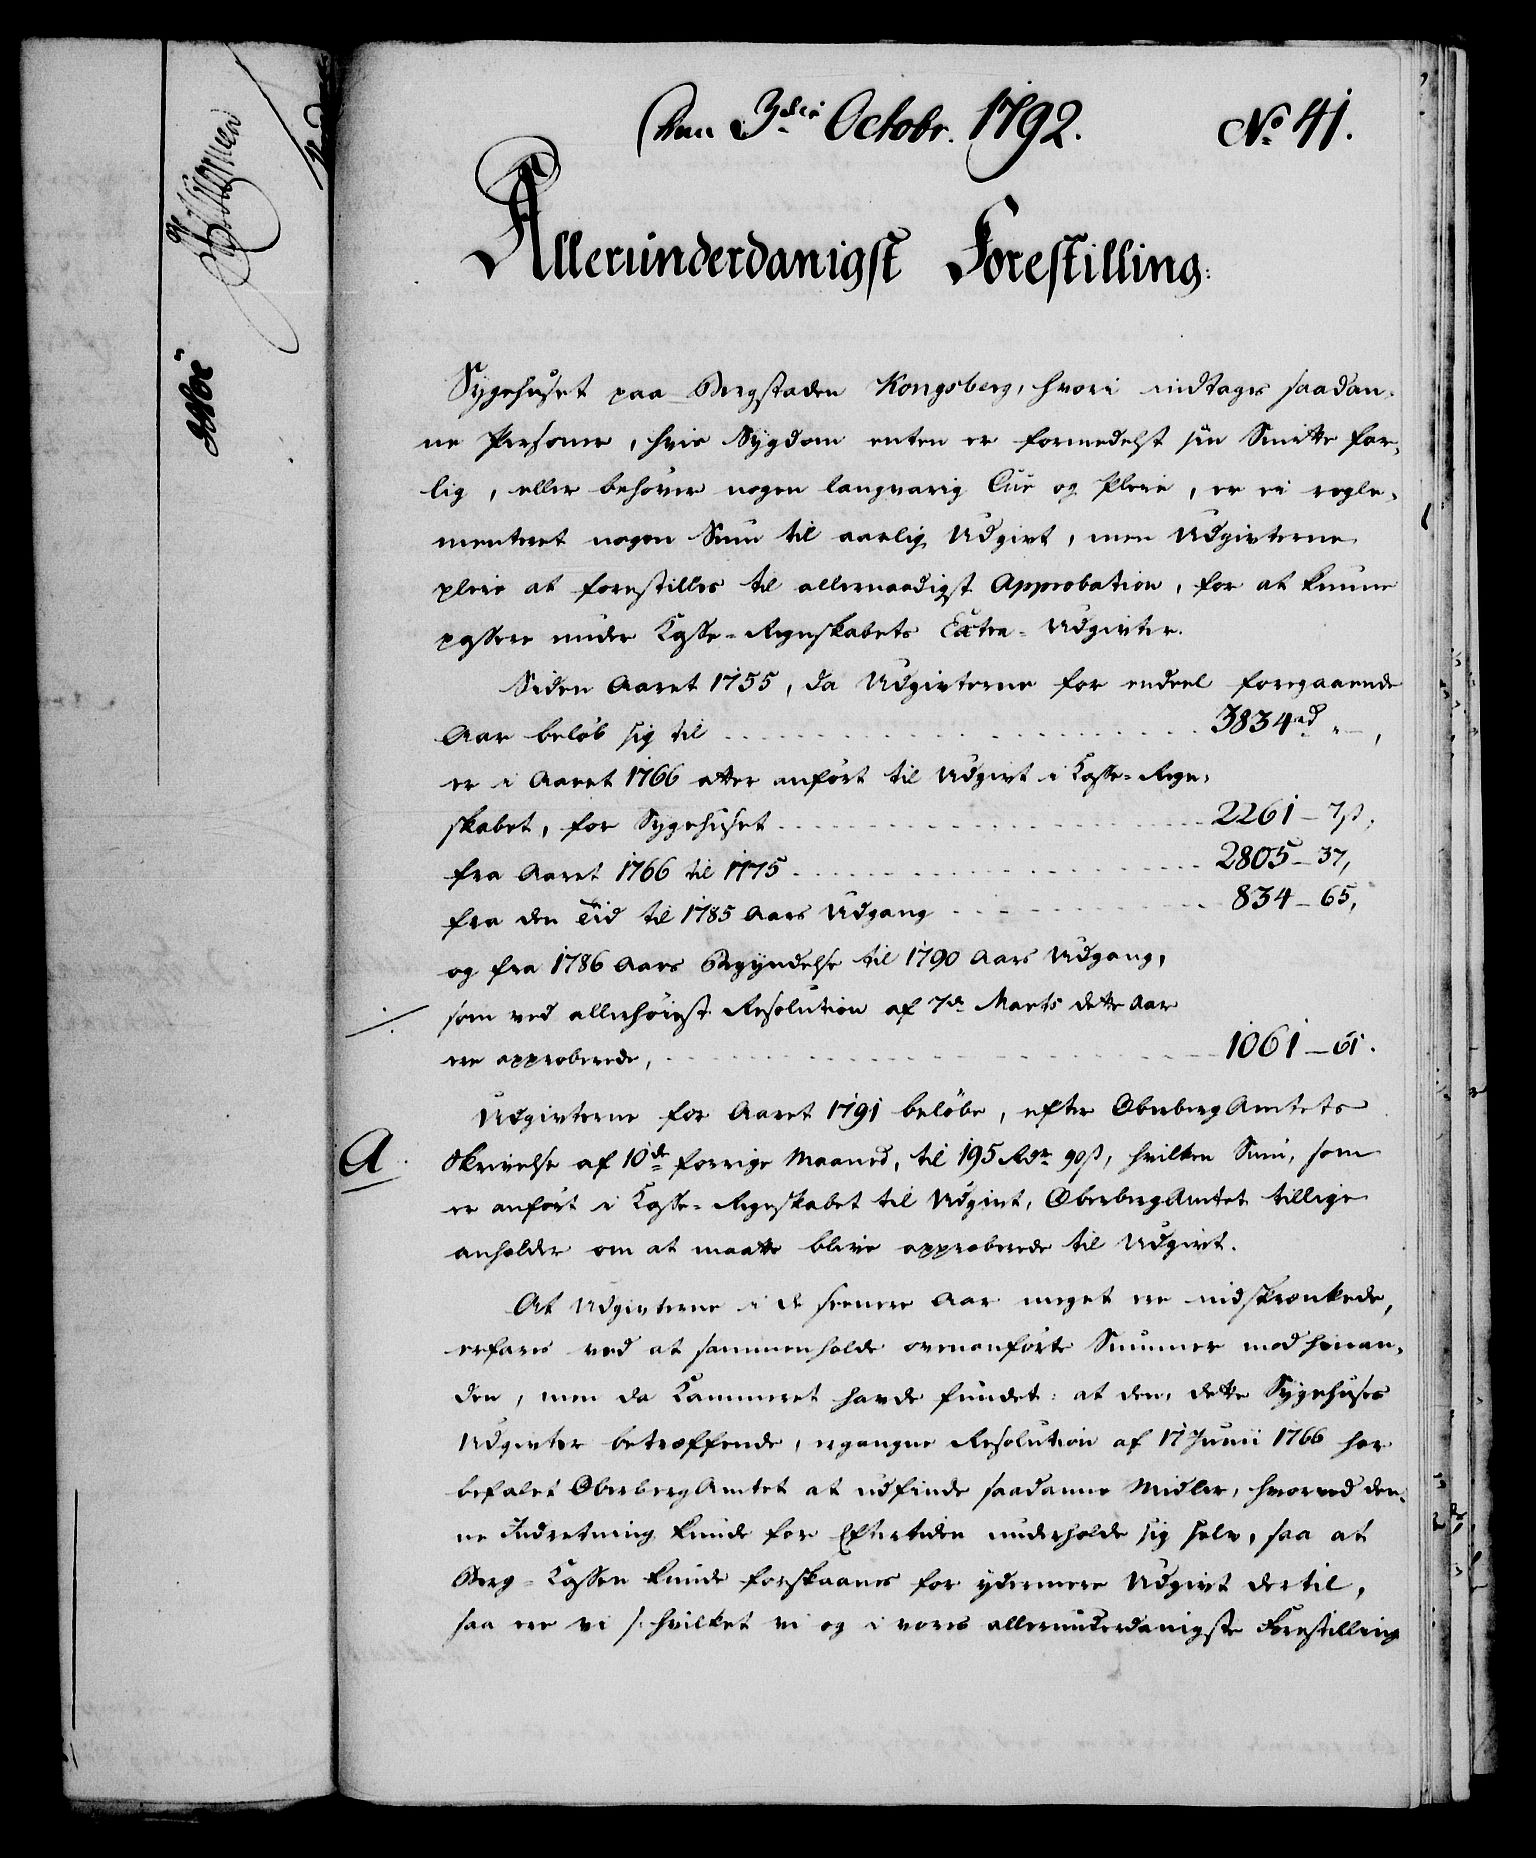 Den 3die Octobr. 1792. No 41.
Allerunderdanigst Forestilling:
Sygehuset paa Bergstaden Kongsberg, hvori indtages saadan-
ne Persone, hvis Sygdom enten er formedelst sin Smitte far-
lig, eller behøver nogen langvarig Cur og Pleie, er ei regle-
menteret nogen Sum til aarlig Udgivt, men Udgivterne
pleie at forestilles til allernaadigst Approbation, for at kunne
passere under Casse-Regnskabets Extra-Udgivter.
Siden Aaret 1755, da Udgivterne for endeel foregaaende
Aar beløb sig til 3834 rd " -,
er i Aaret 1766 atter anført til Udgivt i Casse-Regn-
skabet, for Sygehuset 2261 - 7 ß,
fra Aaret 1766 til 1775 2805 - 37,
fra den Tid til 1785 Aars Udgang 834 - 65,
og fra 1786 Aars Begyndelse til 1790 Aars Udgang,
som ved allerhøiest Resolution af 7de Marts dette Aar
ere approberede, 1061 - 61.
Udgivterne for Aaret 1791 beløbe, efter OberbergAmtets
A. Skrivelse af 10de forrige Maaned, til 195 Rdr 90 ß, hvilken Sum, som
er anført i Casse-Regnskabet til Udgivt, OberbergAmtet tillige
anholder om at maatte blive approberede til Udgivt.
At Udgivterne i de seenere Aar meget ere indskrænkede,
erfares ved at sammenholde ovenanførte Summer mod hinan-
den, men da Kammeret havde fundet: at den, dette Sygehuses
Udgivter betreffende, ergangne Resolution af 17 Junii 1766 har
befalet OberbergAmtet at udfinde saadanne Midler, hvorved den-
ne Indretning kunde for Eftertiden underholde sig selv, saa at
Berg-Cassen kunde forskaanes for ydermere Udgivt dertil,
saa ere vi /: hvilket vi og i vores allerunderdanigste Forestilling